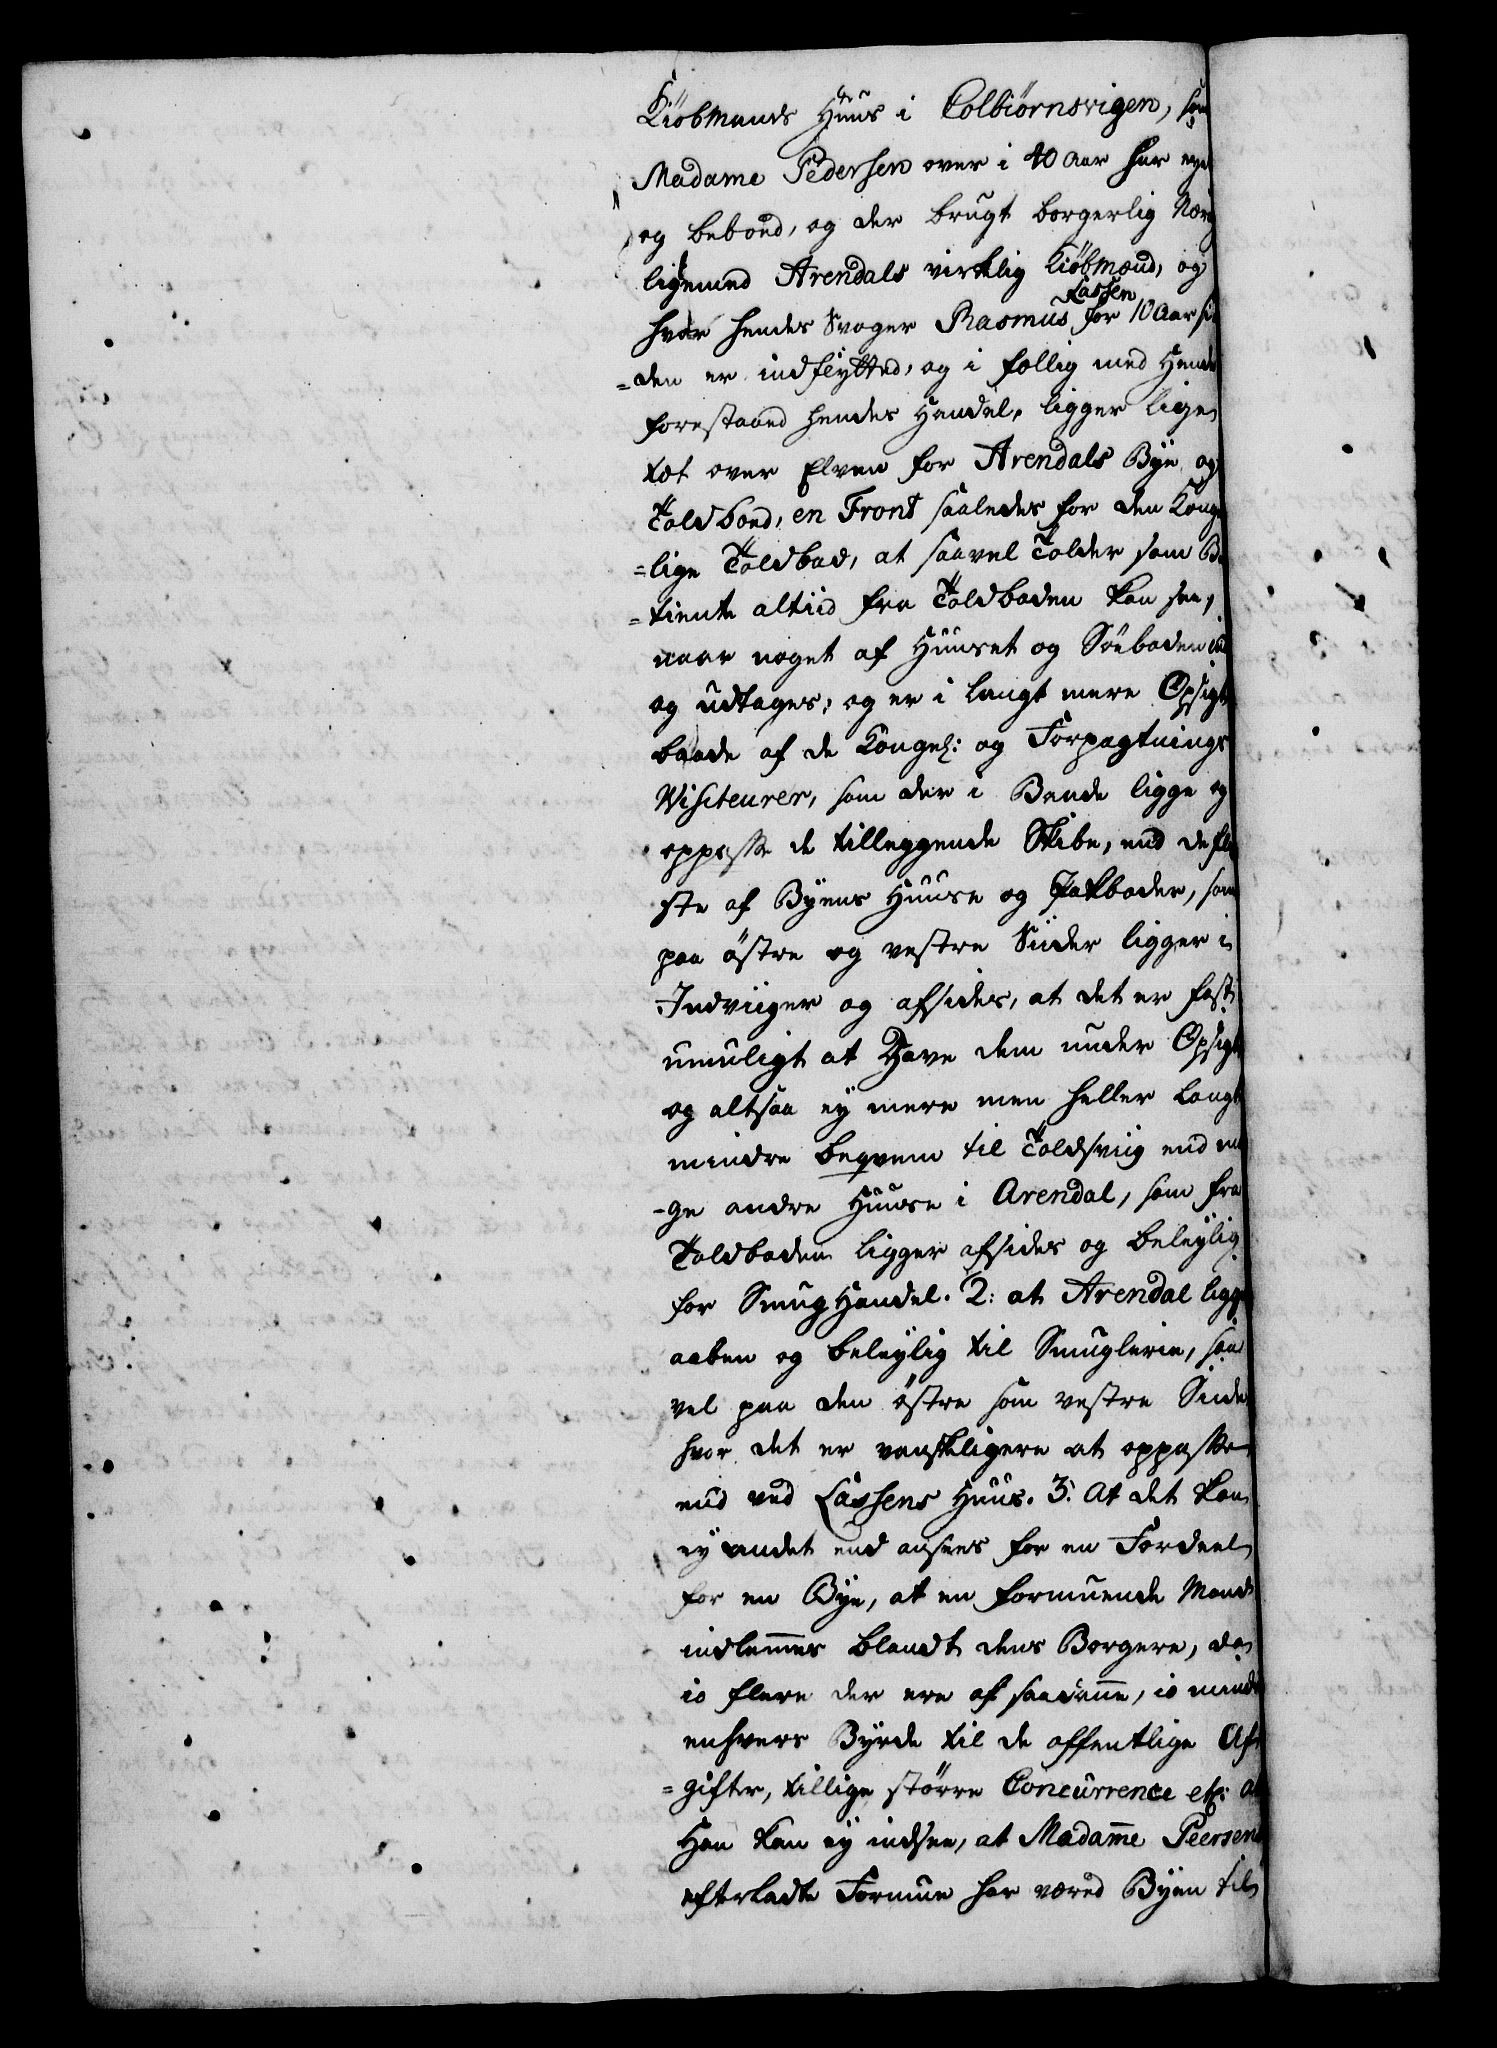 Kiøbmands Huus i Colbiørnsvigen, som
Madame Pedersen over i 40 Aar har eyet
og beboed, og der brugt borgerlig Næring
ligemed Arendals virklig Kiøbmænd, og
hvor hendes Svoger Rasmus Lassen for 10 Aar si
=den er indflytted, og i føllig med Hende
forestaaed hendes Handel, ligger lige
tæt over Elven for Arendals Bye og
Toldboed, en Front saaledes for den Konge
=lige Toldbod, at saavel Tolder som Be
=tiente altiid fra Toldboden kan see,
naar noget af Huuset og Søeboden ind
og udtages, og er i langt mere Opsigt
baade af de Kongel: og Forpagtnings
Visiteurer, som der i Baade ligge og
oppasse de tilleggende Skibe, end de fle
ste af Byens Huuse og Pakboder, som
paa østre og vestre Siider ligger i
Indviiger og afsides, at det er fast
umuligt at Have dem under Opsigt
og altsaa ey mere men heller langt
mindre beqvem til Toldsviig end man
-ge andre Huuse i Arendal, som fra
Toldboden ligger afsides og beleylig
for Smug Handel. 2: at Arendal ligger
aaben og beleylig til Smuglerie, saa
vel paa den østre som vestre Siide
hvor det er vanskeligere at oppasse
end ved Lassens Huus. 3: At det kan
ey andet end ansees for en Fordeel
for en Bye, at en formuende Mand
indlemmes blandt dens Borgere, da
io flere der ere af saadanne, io mindre
enhvers Byrde til de offentlige Af
=gifter, tillige større Concurrence etc: at
Han kan ey indsee, at Madame Peersens
efterladte Formue har været Byen til